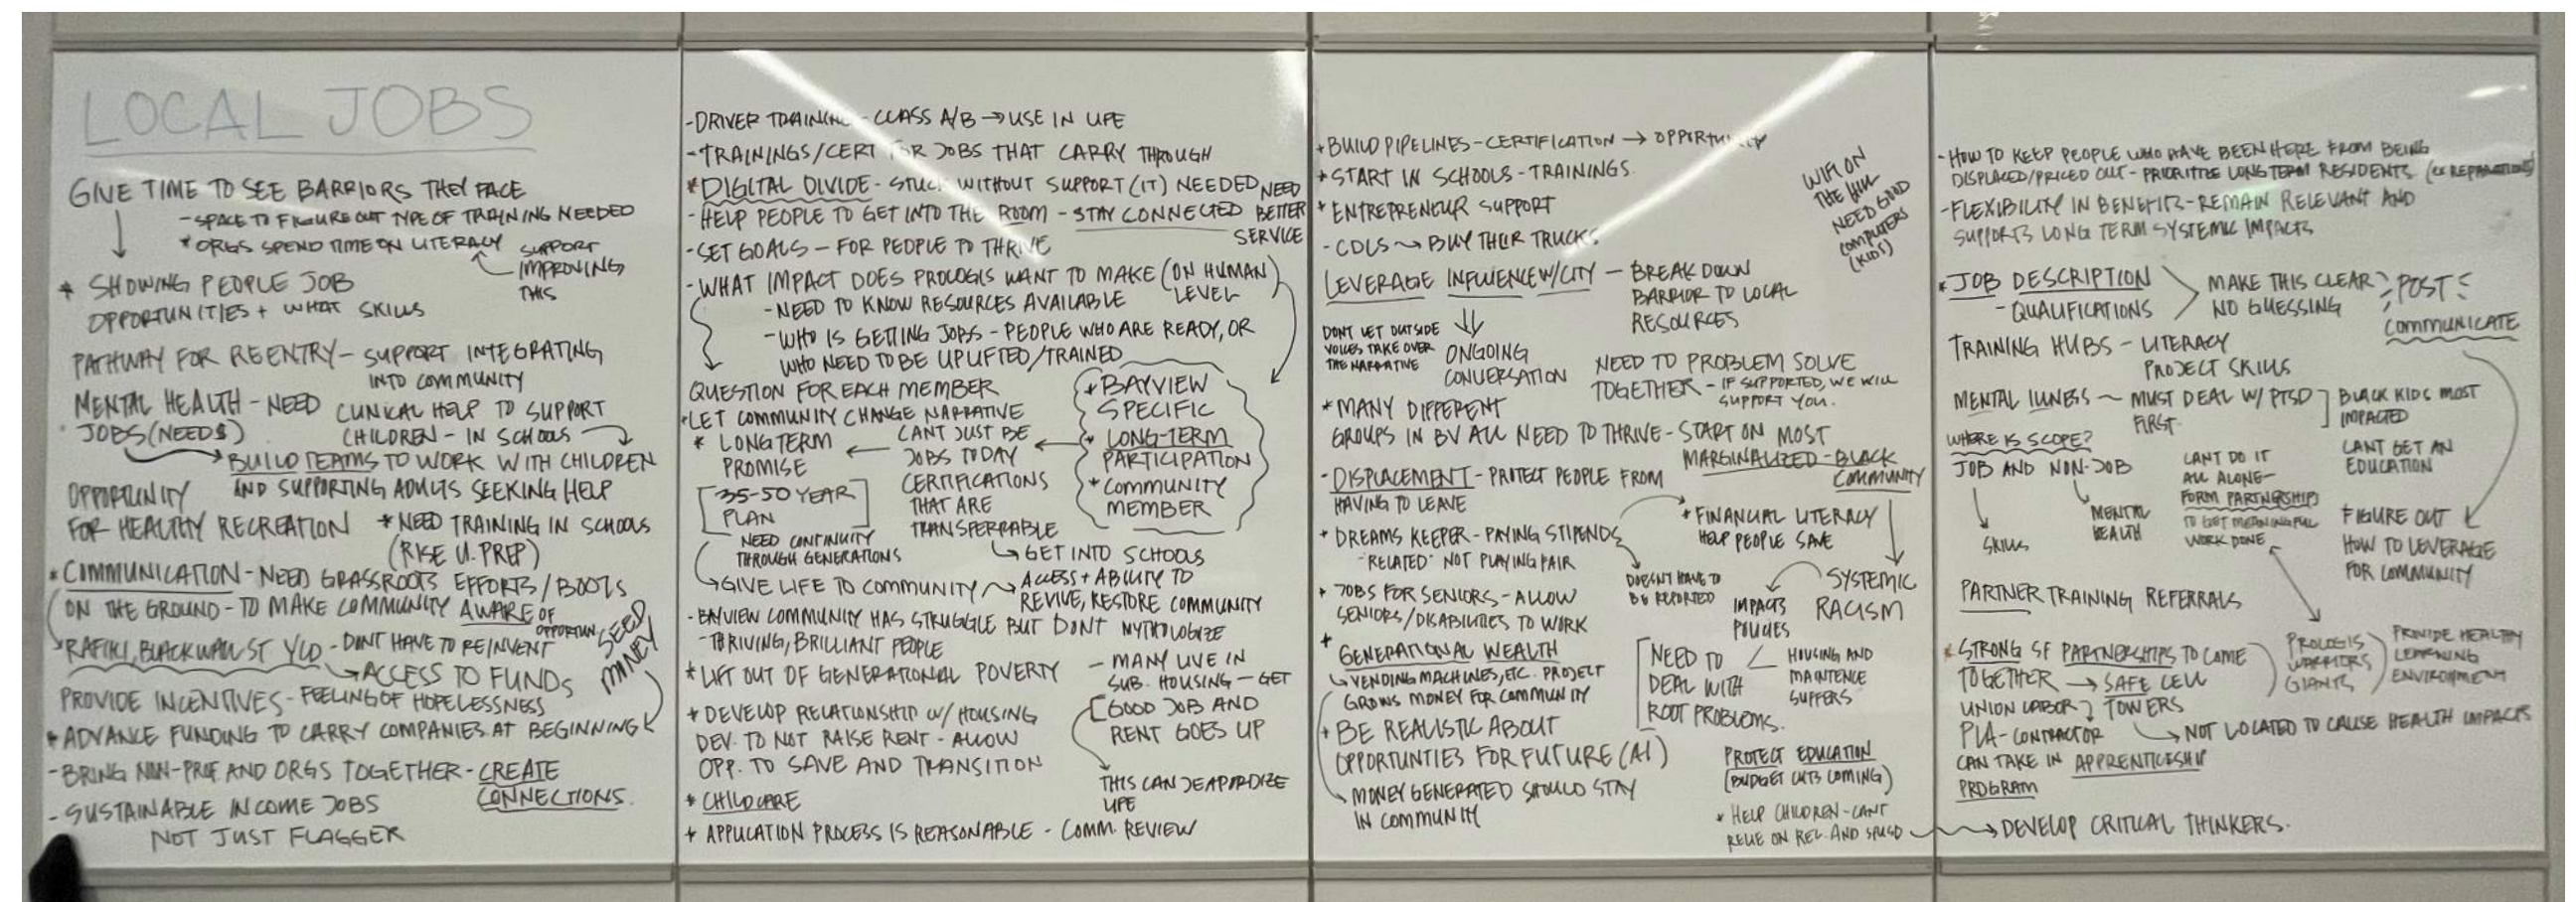 LOCAL JOBS
GIVE TIME TO SEE BARRIORS THEY FACE
- SPACE TO FIGURE OUT TYPE OF TRAINING NEEDED
* ORGS SPEND TIME ON LITERACY
SUPPORT
IMPROVING
THIS
* SHOWING PEOPLE JOB
OPPORTUNITIES + WHAT SKILLS
PATHWAY FOR REENTRY - SUPPORT INTEGRATING
INTO COMMUNITY
MENTAL HEALTH - NEED CLINICAL HELP TO SUPPORT
JOBS (NEED$) CHILDREN - IN SCHOOLS
BUILD TEAMS TO WORK WITH CHILDREN
AND SUPPORTING ADULTS SEEKING HELP
OPPORTUNITY
FOR HEALTHY RECREATION
* NEED TRAINING IN SCHOOLS
(RISE U. PREP)
* COMMUNICATION - NEED GRASSROOTS EFFORTS/BOOTS
ON THE GROUND - TO MAKE COMMUNITY AWARE OF
OPPORTUN.
RAFIKI, BLACK WALL ST YCD - DONT HAVE TO REINVENT
SEED
MONEY
ACCESS TO FUNDS
PROVIDE INCENTIVES - FEELING OF HOPELESSNESS
* ADVANCE FUNDING TO CARRY COMPANIES AT BEGINNING
- BRING NON-PROF AND ORGS TOGETHER - CREATE
CONNECTIONS.
- SUSTAINABLE INCOME JOBS
NOT JUST FLAGGER
- DRIVER TRAINING - CLASS A/B → USE IN LIFE
- TRAININGS/CERT FOR JOBS THAT CARRY THROUGH
* DIGITAL DIVIDE - STUCK WITHOUT SUPPORT (IT) NEEDED NEED
- HELP PEOPLE TO GET INTO THE ROOM - STAY CONNECTED BETTER
SERVICE
- SET GOALS - FOR PEOPLE TO THRIVE
- WHAT IMPACT DOES PROLOGIS WANT TO MAKE (ON HUMAN
LEVEL)
- NEED TO KNOW RESOURCES AVAILABLE
- WHO IS GETTING JOBS - PEOPLE WHO ARE READY, OR
WHO NEED TO BE UPLIFTED/TRAINED
QUESTION FOR EACH MEMBER
* LET COMMUNITY CHANGE NARRATIVE
* BAYVIEW
SPECIFIC
* LONG-TERM
PARTICIPATION
* COMMUNITY
MEMBER
CANT JUST BE
JOBS TODAY
CERTIFICATIONS
THAT ARE
TRANSFERRABLE
* LONG TERM
PROMISE
[35-50 YEAR
PLAN]
NEED CONTINUITY
THROUGH GENERATIONS
GET INTO SCHOOLS
GIVE LIFE TO COMMUNITY
ACCESS + ABILITY TO
REVIVE, RESTORE COMMUNITY
- BAYVIEW COMMUNITY HAS STRUGGLE BUT DONT MYTHOLOGIZE
- THRIVING, BRILLIANT PEOPLE
* LIFT OUT OF GENERATIONAL POVERTY
- MANY LIVE IN
SUB. HOUSING - GET
GOOD JOB AND
RENT GOES UP
* DEVELOP RELATIONSHIP W/ HOUSING
DEV. TO NOT RAISE RENT - ALLOW
OPP. TO SAVE AND TRANSITION
THIS CAN JEAPORDIZE
LIFE
* CHILDCARE
* APPLICATION PROCESS IS REASONABLE - COMM. REVIEW
* BUILD PIPELINES - CERTIFICATION → OPPORTUNITY
* START IN SCHOOLS - TRAININGS
* ENTREPRENEUR SUPPORT
- CDLS BUY THEIR TRUCKS
WIFI ON
THE HILL
NEED GOOD
COMPUTERS
(KIDS)
LEVERAGE INFLUENCE W/CITY - BREAK DOWN
BARRIOR TO LOCAL
RESOURCES
DONT LET OUTSIDE
VOICES TAKE OVER
THE NARRATIVE
ONGOING
CONVERSATION
NEED TO PROBLEM SOLVE
TOGETHER - IF SUPPORTED, WE WILL
SUPPORT YOU.
* MANY DIFFERENT
GROUPS IN BV ALL NEED TO THRIVE - START ON MOST
MARGINALIZED - BLACK
COMMUNITY
- DISPLACEMENT - PROTECT PEOPLE FROM
HAVING TO LEAVE
* FINANCIAL LITERACY
HELP PEOPLE SAVE
* DREAMS KEEPER - PAYING STIPENDS
"RELATED" NOT PLAYING FAIR
DOESN'T HAVE TO
BE REPORTED
SYSTEMIC
RACISM
IMPACTS
POLICIES
* JOBS FOR SENIORS - ALLOW
SENIORS/DISABILITIES TO WORK
* GENERATIONAL WEALTH
VENDING MACHINES, ETC. PROJECT
GROWS MONEY FOR COMMUNITY
NEED TO
DEAL WITH
ROOT PROBLEMS.
HOUSING AND
MAINTENCE
SUFFERS
* BE REALISTIC ABOUT
OPPORTUNTIES FOR FUTURE (AI)
MONEY GENERATED SHOULD STAY
IN COMMUNITY
PROTECT EDUCATION
(BUDGET CUTS COMING)
* HELP CHILDREN - CANT
RELIE ON REC. AND SFUSD
- HOW TO KEEP PEOPLE WHO HAVE BEEN HERE FROM BEING
DISPLACED/PRICED OUT - PRIORITIZE LONG TERM RESIDENTS (EX REPARATIONS)
- FLEXIBILITY IN BENEFITS - REMAIN RELEVANT AND
SUPPORTS LONG TERM SYSTEMIC IMPACTS
* JOB DESCRIPTION
- QUALIFICATIONS
MAKE THIS CLEAR
NO GUESSING
POST
COMMUNICATE
TRAINING HUBS - LITERACY
PROJECT SKILLS
MENTAL ILLNESS - MUST DEAL W/ PTSD
FIRST.
BLACK KIDS MOST
IMPACTED
CANT GET AN
EDUCATION
WHERE IS SCOPE?
JOB AND NON-JOB
SKILLS
MENTAL
HEALTH
CANT DO IT
ALL ALONE -
FORM PARTNERSHIPS
TO GET MEANINGFUL
WORK DONE
FIGURE OUT
HOW TO LEVERAGE
FOR COMMUNITY
PARTNER TRAINING REFERRALS
* STRONG SF PARTNERSHIPS TO COME
TOGETHER → SAFE CELL
TOWERS
PROLOGIS
WARRIORS
GIANTS
PROVIDE HEALTHY
LEARNING
ENVIRONMENT
NOT LOCATED TO CAUSE HEALTH IMPACTS
UNION LABOR
PLA - CONTRACTOR
CAN TAKE IN APPRENTICESHIP
PROGRAM
DEVELOP CRITICAL THINKERS.